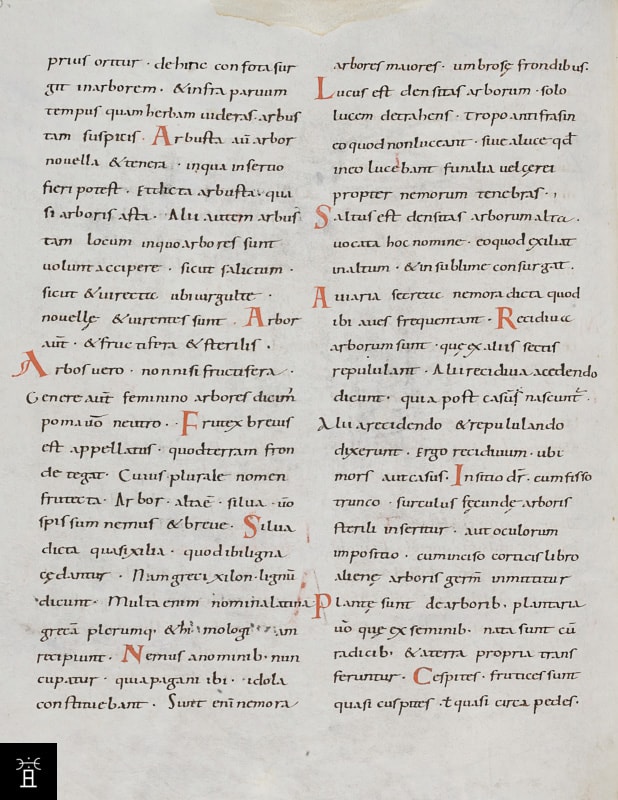 prius oritur · dehinc confota sur
git inarborem · & infra paruum
tempus quam herbam uideras. arbus
tam suspicis. Arbusta aū arbor
nouella & tenera · inqua insertio
fieri potest. Et dicta arbusta. qua
si arboris asta. Alii autem arbus
tam locum inquo arbores sunt
uolunt accipere · sicut salictum ·
sicut & uirecta ubi uirgulte ·
nouellę & uirentes sunt. Arbor
aūt · & fructifera & sterilis.
Arbos uero · non nisi fructifera.
Genere aūt feminino arbores dicim̄
poma u̅o neutro. Frutex breuis
est appellatus · quod terram fron
de tegat. Cuius plurale nomen
frutecta. Arbor · alta ē · silua u̅o
spissum nemus & breue. Silua
dicta quasi xilia · quod ibi ligna
cędantur. Nam greci xilon · lignū
dicunt. Multa enim nomina latina
grecā plerumq.
recipiunt. Nemus a nominib· nun
cupatur · quia pagani ibi · idola
constituebant. Sunt eni̅ nemora
arbores maiores · umbrosę frondibus.
Lucus est densitas arborum · solo
lucem detrahens. Tropo antifrasin
eo quod non luceant. siue a luce qđ
in eo lucebant funalia uel cęrei
propter nemorum tenebras.
Saltus est densitas arborum alta.
uocata hoc nomine. eo quod exiliat
in altum · & in sublime consurgat.
Auiaria secreta nemora dicta quod
ibi aues frequentant. Recidiua
arborum sunt · quę ex aliis sectis
repululant. Alii recidiua acedendo
dicunt. quia post casus̄ nascunt̄.
Alii a recidendo & repululando
dixerunt. Ergo recidiuum · ubi
mors aut casus. Insitio dr̄. cum fisso
trunco · surculus fęcundę arboris
sterili inseritur · aut oculorum
impositio · cum inciso corticis libro
alienę arboris germ̄ inmittitur
Plantę sunt de arborib. plantaria
u̅o quę ex seminib. nata sunt cū
radicib. & a terra propria trans
feruntur. Cespites. frutices sunt
quasi cuspites ł quasi circa pedes.